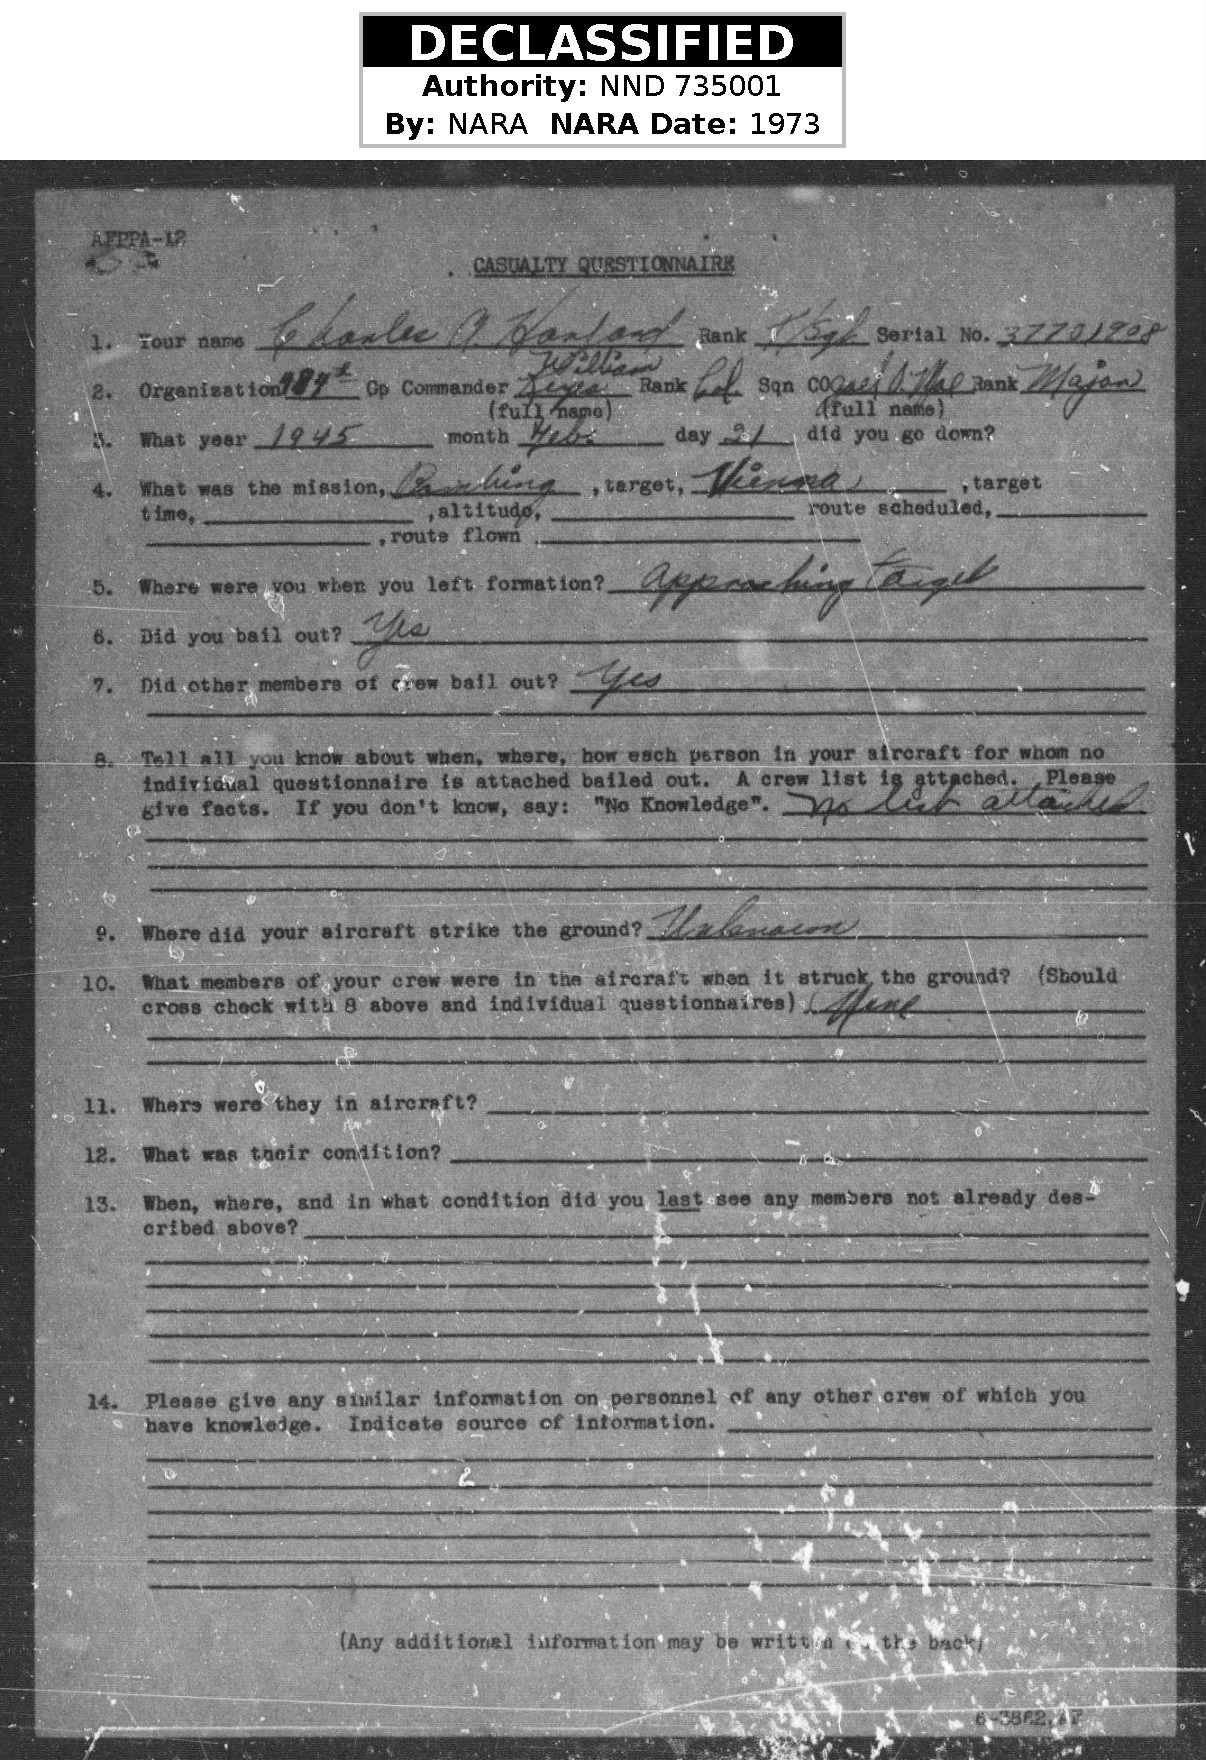 DECLASSIFIED
Authority: NND 735001
By: NARA NARA Date: 1973
AFPPA-12
CASUALTY QUESTIONNAIRE
1. Your name Charles A. Rank T/Sgt Serial No. 37701908
2. Organization 484th Gp Commander William Keese Rank Col. Sqn CO Rank Major
(full name) (full name)
3. What year 1945 month Feb. day 21 did you go down?
4. What was the mission, Bombing , target, Vienna , target
time, , altitude, route scheduled,
, route flown
5. Where were you when you left formation? approaching target
6. Did you bail out? Yes
7. Did other members of crew bail out? Yes
8. Tell all you know about when, where, how each person in your aircraft for whom no
individual questionnaire is attached bailed out. A crew list is attached. Please
give facts. If you don't know, say: "No Knowledge". No list attached
9. Where did your aircraft strike the ground? Unknown
10. What members of your crew were in the aircraft when it struck the ground? (Should
cross check with 8 above and individual questionnaires)
11. Where were they in aircraft?
12. What was their condition?
13. When, where, and in what condition did you last see any members not already des-
cribed above?
14. Please give any similar information on personnel of any other crew of which you
have knowledge. Indicate source of information.
(Any additional information may be written on the back)
6-3862,AF